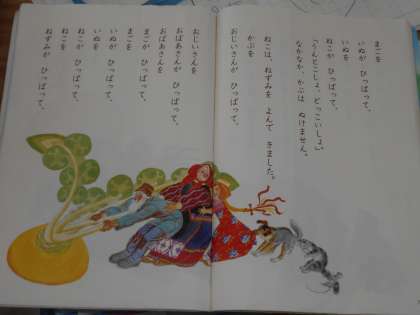 まごを
いぬが ひっぱって、
いぬを
ねこが ひっぱって、
「うんとこしょ、どっこいしょ。」
なかなか、かぶは ぬけません。
ねこは、ねずみを よんで きました。
かぶを
おじいさんが ひっぱって、
おじいさんを
おばあさんが ひっぱって、
おばあさんを
まごが ひっぱって、
まごを
いぬが ひっぱって、
いぬを
ねこが ひっぱって、
ねこを
ねずみが ひっぱって、